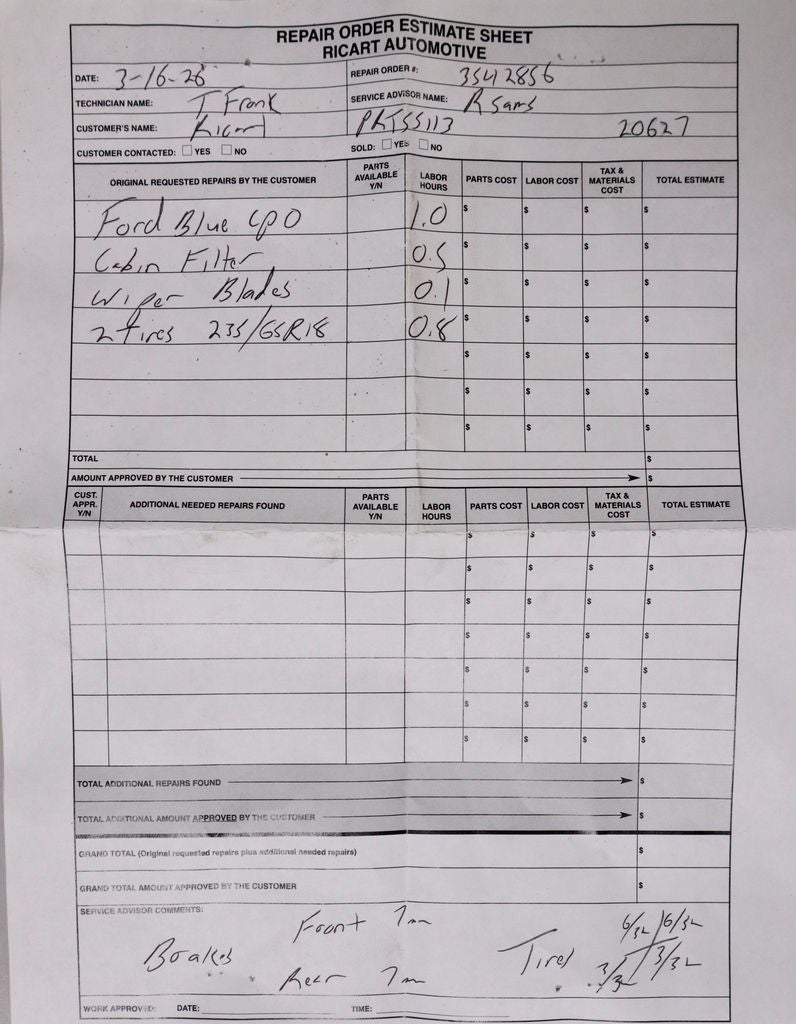 REPAIR ORDER ESTIMATE SHEET
RICART AUTOMOTIVE
DATE: 3-16-26 REPAIR ORDER #: 3542856
TECHNICIAN NAME: T Frank SERVICE ADVISOR NAME: R Sams
CUSTOMER'S NAME: Ricart PRTSS113 20627
CUSTOMER CONTACTED: YES NO SOLD: YES NO
ORIGINAL REQUESTED REPAIRS BY THE CUSTOMER PARTS AVAILABLE Y/N LABOR HOURS PARTS COST LABOR COST TAX & MATERIALS COST TOTAL ESTIMATE
Ford Blue CPO 1.0 $ $ $ $
Cabin Filter 0.5 $ $ $ $
Wiper Blades 0.1 $ $ $ $
2 tires 235/65R18 0.8 $ $ $ $
$ $ $ $
$ $ $ $
$ $ $ $
TOTAL $
AMOUNT APPROVED BY THE CUSTOMER $
CUST. APPR. Y/N ADDITIONAL NEEDED REPAIRS FOUND PARTS AVAILABLE Y/N LABOR HOURS PARTS COST LABOR COST TAX & MATERIALS COST TOTAL ESTIMATE
$ $ $ $
$ $ $ $
$ $ $ $
$ $ $ $
$ $ $ $
$ $ $ $
$ $ $ $
TOTAL ADDITIONAL REPAIRS FOUND $
TOTAL ADDITIONAL AMOUNT APPROVED BY THE CUSTOMER $
GRAND TOTAL (Original requested repairs plus additional needed repairs) $
GRAND TOTAL AMOUNT APPROVED BY THE CUSTOMER $
SERVICE ADVISOR COMMENTS:
Front 7mm 6/32 6/32
Brakes Tires
Rear 7mm 3/32 3/32
WORK APPROVED: DATE: TIME: